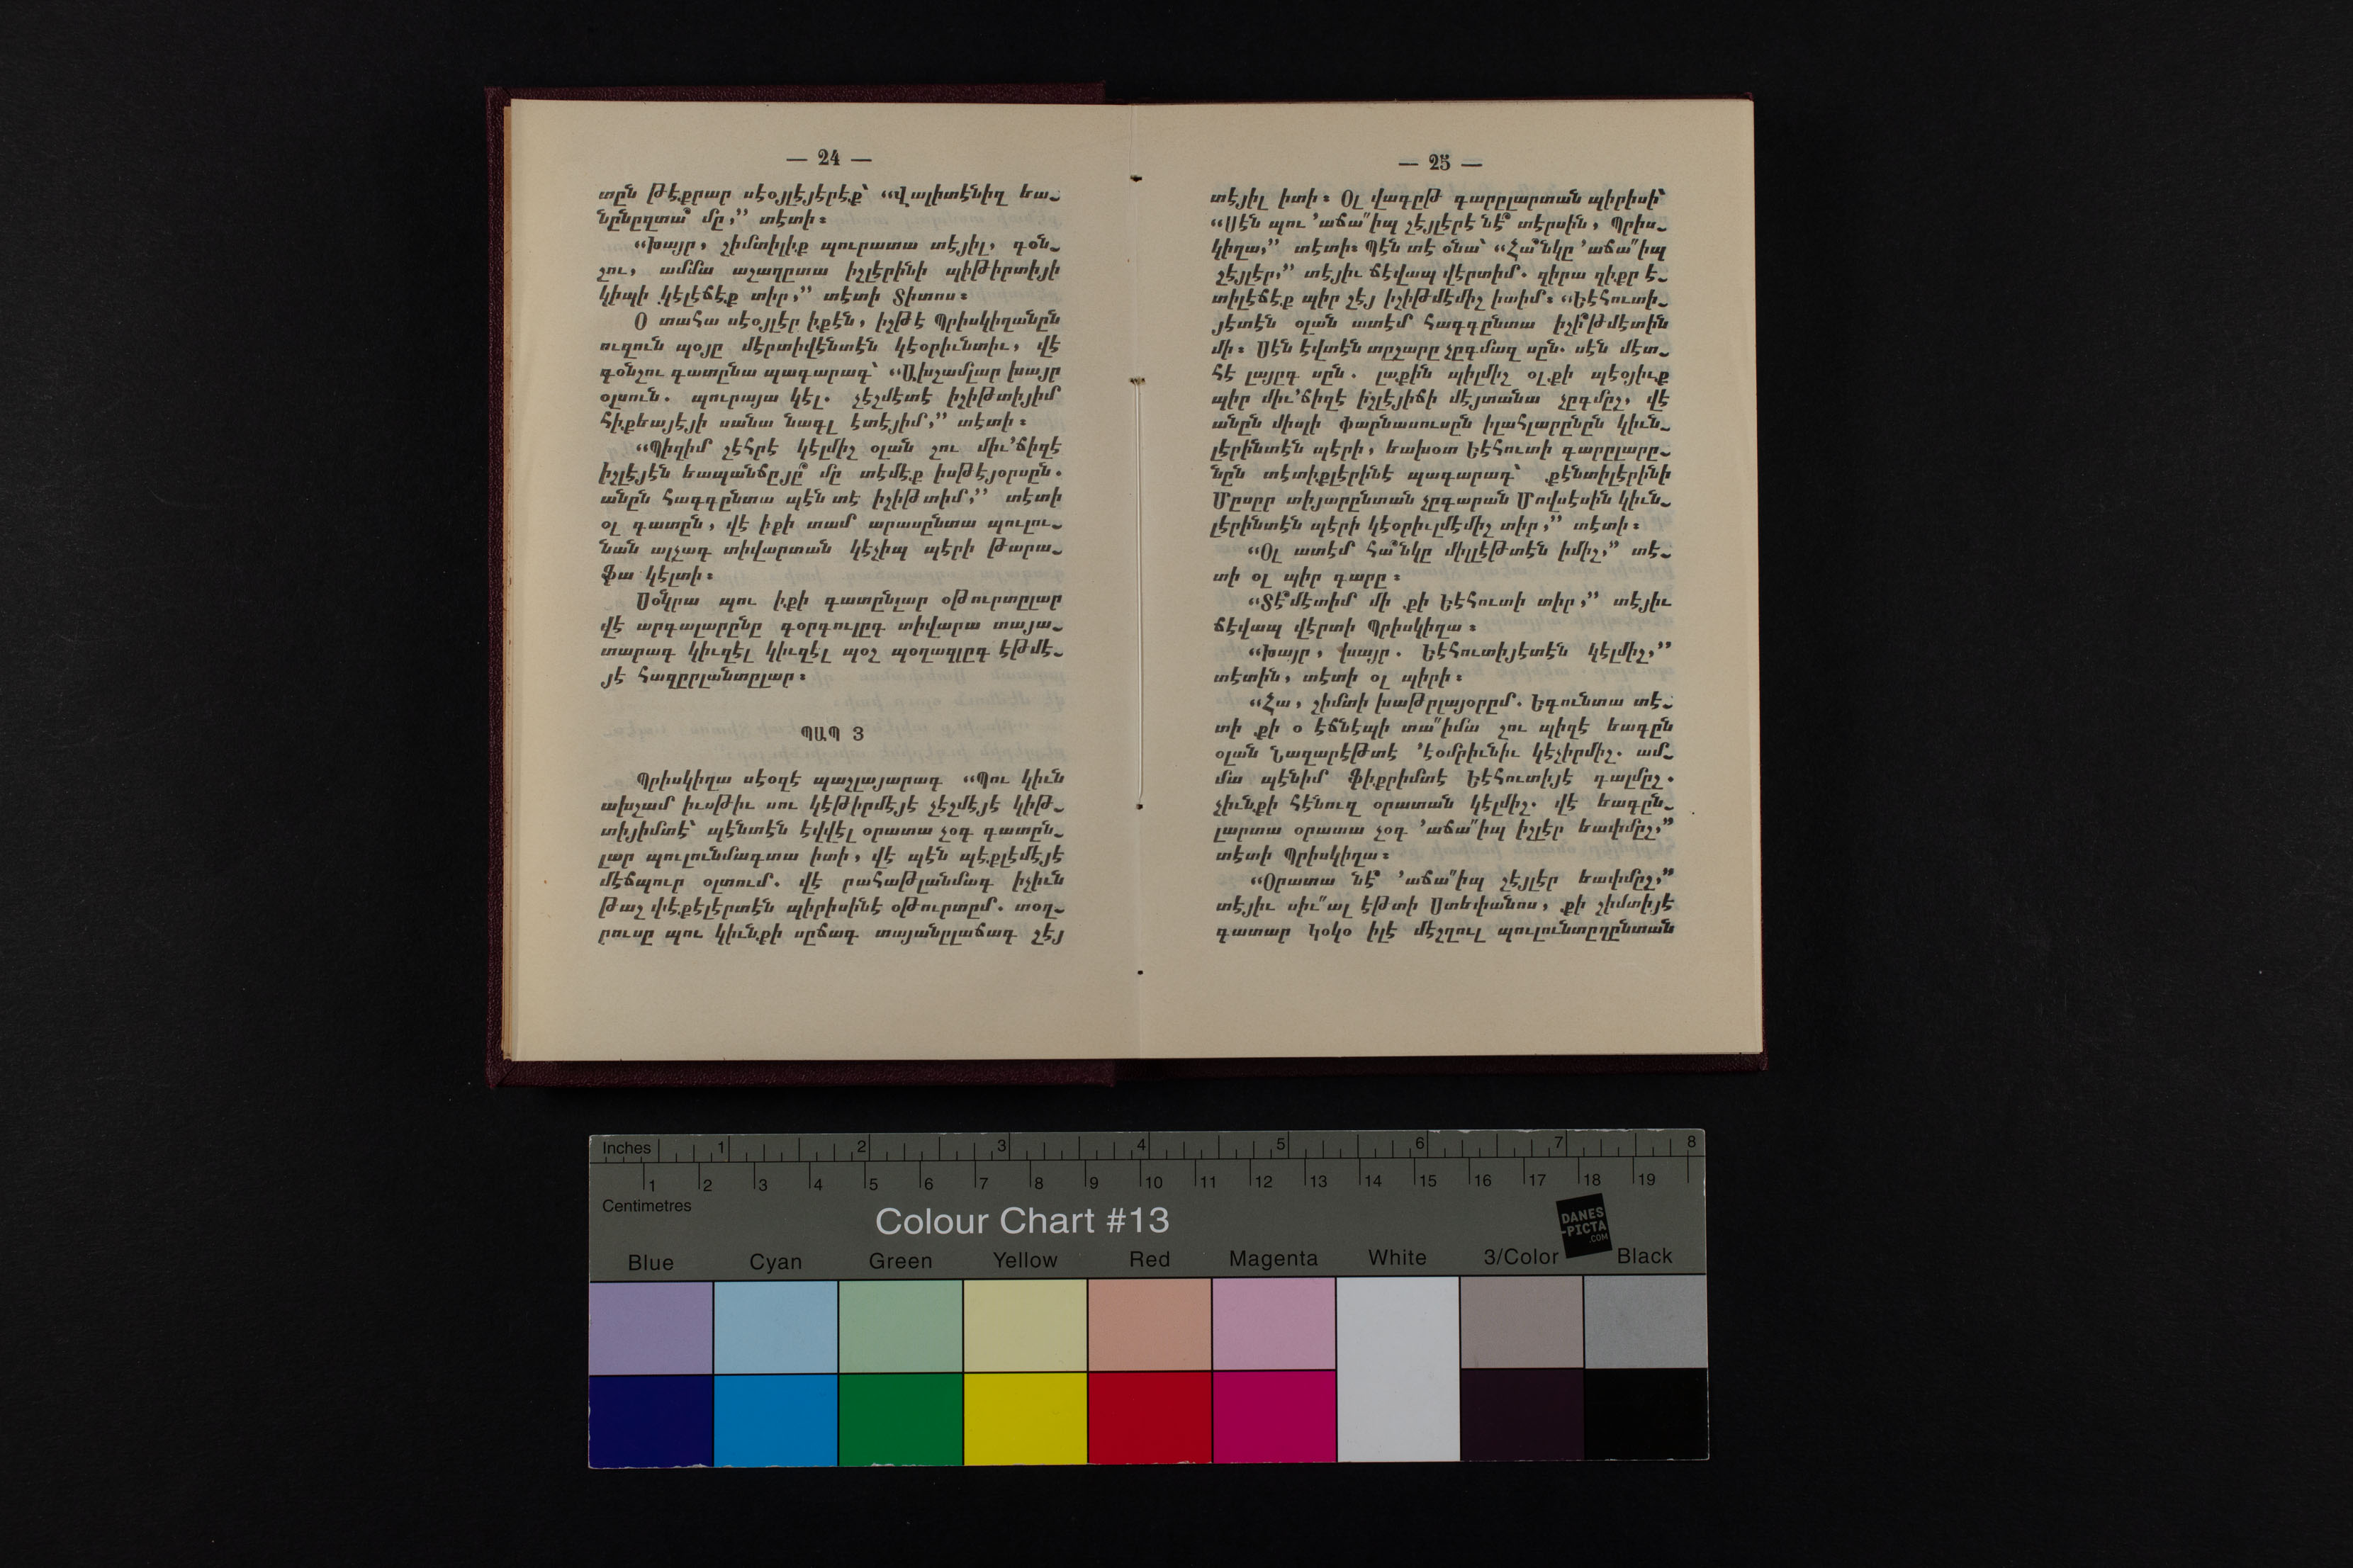 — 24 —
տըն թէքրար սէօյլէյէրէք՝ “Վալիտէնիզ եա֊
նընըզտա՞ մը,” տէտի։
“Խայր, շիմտիլիք պուրատա տէյիլ, գօն֊
շու, ամմա աշաղըտա իշլէրինի պիթիրտիյի
կիպի կէլէճէք տիր,” տէտի Տիտոս։
Օ տահա սէօյլէր իքէն, իշթէ Պրիսկիղանըն
ուզուն պօյը մէրտիվէնտէն կէօրիւնտիւ, վէ
գօնշու գատընա պագարագ՝ “Ախշամլար խայր
օլսուն. պուրայա կէլ. չէշմէտէ իշիթտիյիմ
հիքեայէյի սանա նագլ էտէյիմ,” տէտի։
“Պիզիմ շէհրէ կէլմիշ օլան շու միւ՚ճիզէ
իշլէյէն եապանճըյը՞ մը տէմէք իսթէյօրսըն.
անըն հագգընտա պէն տէ իշիթտիմ,” տէտի
օլ գատըն, վէ իքի տամ արասընտա պուլու֊
նան ալչագ տիվարտան կէչիպ պէրի թարա֊
ֆա կէլտի։
Սօնկրա պու իքի գատընլար օթուրտըլար
վէ արգալարընը գօրգուլըգ տիվարա տայա֊
տարագ կիւզէլ կիւզէլ պօշ պօղազլըգ էթմէ֊
յէ հազըրլանտըլար։
ՊԱՊ 3
Պրիսկիղա սէօզէ պաշլայարագ “Պու կիւն
ախշամ իւսթիւ սու կէթիրմէյէ չէշմէյէ կիթ֊
տիյիմտէ՝ պէնտէն էվվէլ օրատա չօգ գատըն֊
լար պուլունմագտա իտի, վէ պէն պէքլէմէյէ
մէճպուր օլտում. վէ րահաթլանմագ իչիւն
թաշ փէքէլէրտէն պիրիսինէ օթուրտըմ. տօղ֊
րուսը պու կիւնքի սըճագ տայանըլաճագ շէյ
— 25 —
տէյիլ իտի։ Օլ վագըթ գարըլարտան պիրիսի՝
“Սէն պու ՚աճա՛՛իպ շէյլէրէ նէ՞ տէրսին, Պրիս֊
կիղա,” տէտի։ Պէն տէ օնա՝ “Հա՞նկը ՚աճա՛՛իպ
շէյլէր,” տէյիւ ճէվապ վէրտիմ. զիրա զիքր է֊
տիլէճէք պիր շէյ իշիթմէմիշ իտիմ։ “Եէհուտի֊
յէտէն օլան ատէմ հագգընտա իշի՞թմէտին
մի։ Սէն էվտէն տըշարը չըգմազ սըն. սէն մէտ֊
հէ լայըգ սըն. լաքին պիլմիշ օլ քի պէօյիւք
պիր միւ՚ճիզէ իշլէյիճի մէյտանա չըգմըշ, վէ
անըն միսլի Փարնասուսըն իլահլարընըն կիւն֊
լէրինտէն պէրի, եախօտ Եէհուտի գարըլարը֊
նըն տէտիքլէրինէ պագարագ՝ քէնտիլէրինի
Մըսըր տիյարընտան չըգարան Մովսէսին կիւն֊
լէրինտէն պէրի կէօրիւլմէմիշ տիր,” տէտի։
“Օլ ատէմ հա՞նկը միլլէթտէն իմիշ,” տէ֊
տի օլ պիր գարը։
“Տէ՞մէտիմ մի քի Եէհուտի տիր,” տէյիւ
ճէվապ վէրտի Պրիսկիղա։
“Խայր, խայր. Եէհուտիյէտէն կէլմիշ,”
տէտին, տէտի օլ պիրի։
“Հա, շիմտի խաթրլայօրըմ. Եգունտա տէ֊
տի քի օ էճնէպի տա՛՛իմա շու պիզէ եագըն
օլան Նազարէթտէ ՚էօմրիւնիւ կէչիրմիշ. ամ֊
մա պէնիմ ֆիքրիմտէ Եէհուտիյէ գալմըշ.
չիւնքի հէնուզ օրատան կէլմիշ. վէ եագըն֊
լարտա օրատա չօգ ՚աճա՛՛իպ իշլէր եափմըշ,”
տէտի Պրիսկիղա։
“Օրատա նէ՞ ՚աճա՛՛իպ շէյլէր եափմըշ,”
տէյիւ սիւ՛՛ալ էթտի Ստեփանոս, քի շիմտիյէ
գատար Կօկօ իլէ մէշղուլ պուլունտըղընտան
Inches 1 2 3 4 5 6 7 8
1 2 3 4 5 6 7 8 9 10 11 12 13 14 15 16 17 18 19
Centimetres
Colour Chart #13
DANES
-PICTA
.COM
Blue Cyan Green Yellow Red Magenta White 3/Color Black